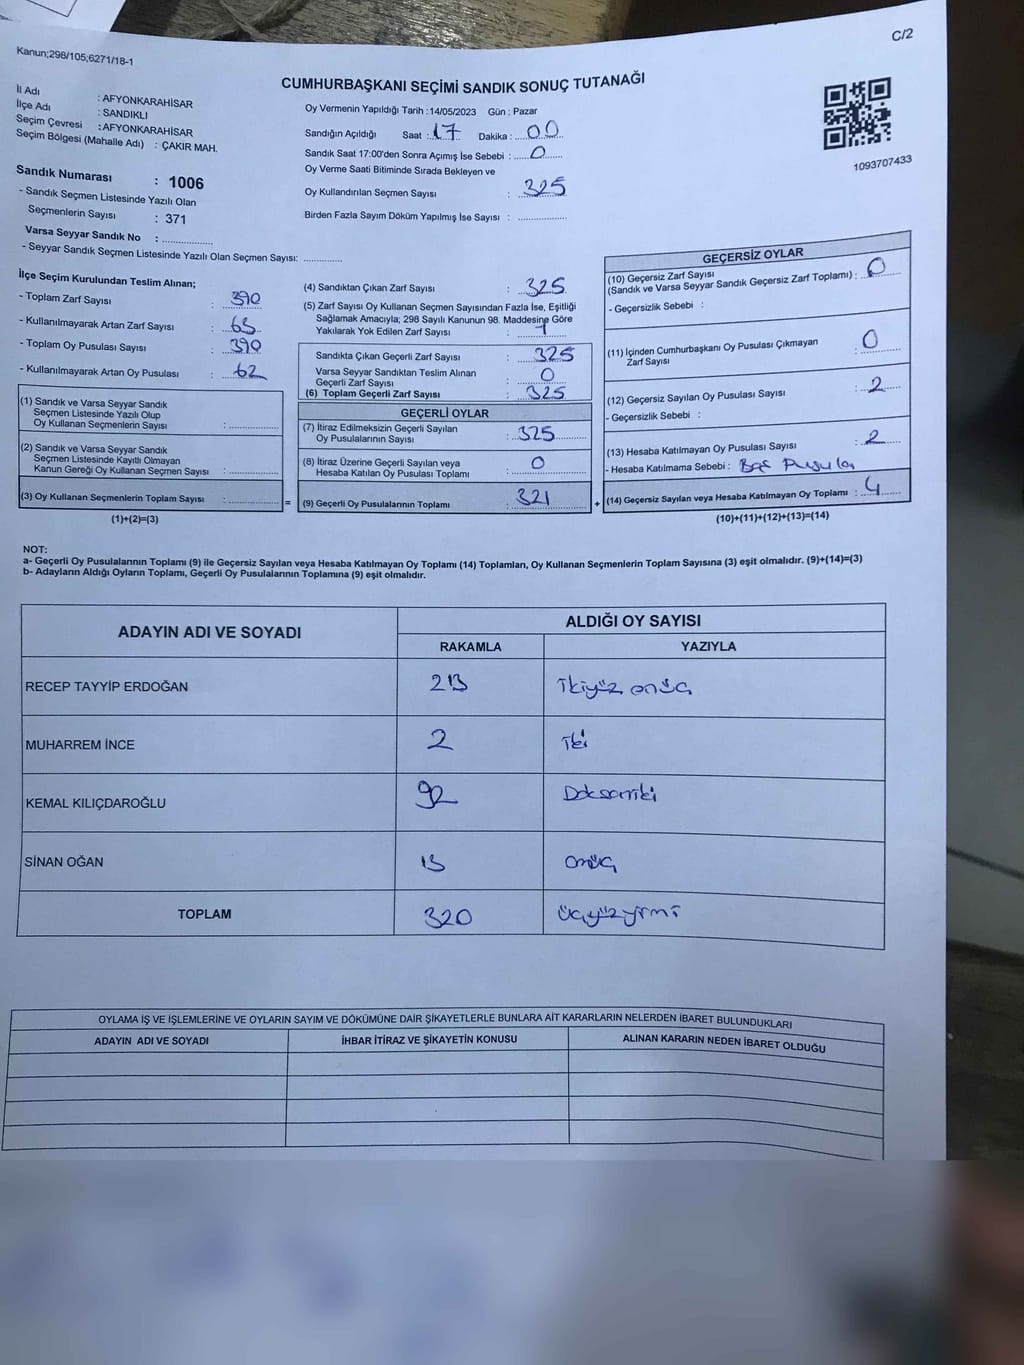 C/2
Kanun;298/105;6271/18-1
CUMHURBAŞKANI SEÇİMİ SANDIK SONUÇ TUTANAĞI
İl Adı : AFYONKARAHİSAR
İlçe Adı : SANDIKLI
Seçim Çevresi : AFYONKARAHİSAR
Seçim Bölgesi (Mahalle Adı) : ÇAKIR MAH.
Sandık Numarası : 1006
- Sandık Seçmen Listesinde Yazılı Olan
Seçmenlerin Sayısı : 371
Varsa Seyyar Sandık No : ................
- Seyyar Sandık Seçmen Listesinde Yazılı Olan Seçmen Sayısı: ............
Oy Vermenin Yapıldığı Tarih :14/05/2023 Gün : Pazar
Sandığın Açıldığı Saat : 17 Dakika : 00
Sandık Saat 17:00'den Sonra Açımış İse Sebebi : 0
Oy Verme Saati Bitiminde Sırada Bekleyen ve
Oy Kullandırılan Seçmen Sayısı : 325
Birden Fazla Sayım Döküm Yapılmış İse Sayısı : ................
1093707433
İlçe Seçim Kurulundan Teslim Alınan;
- Toplam Zarf Sayısı : 390
- Kullanılmayarak Artan Zarf Sayısı : 65
- Toplam Oy Pusulası Sayısı : 390
- Kullanılmayarak Artan Oy Pusulası : 62
(1) Sandık ve Varsa Seyyar Sandık
Seçmen Listesinde Yazılı Olup
Oy Kullanan Seçmenlerin Sayısı : ................
(2) Sandık ve Varsa Seyyar Sandık
Seçmen Listesinde Kayıtlı Olmayan
Kanun Gereği Oy Kullanan Seçmen Sayısı : ................
(3) Oy Kullanan Seçmenlerin Toplam Sayısı : ................ =
(1)+(2)=(3)
(4) Sandıktan Çıkan Zarf Sayısı : 325
(5) Zarf Sayısı Oy Kullanan Seçmen Sayısından Fazla İse, Eşitliği
Sağlamak Amacıyla; 298 Sayılı Kanunun 98. Maddesine Göre
Yakılarak Yok Edilen Zarf Sayısı : 1
Sandıkta Çıkan Geçerli Zarf Sayısı : 325
Varsa Seyyar Sandıktan Teslim Alınan
Geçerli Zarf Sayısı : 0
(6) Toplam Geçerli Zarf Sayısı : 325
GEÇERLİ OYLAR
(7) İtiraz Edilmeksizin Geçerli Sayılan
Oy Pusulalarının Sayısı : 325
(8) İtiraz Üzerine Geçerli Sayılan veya
Hesaba Katılan Oy Pusulası Toplamı : 0
(9) Geçerli Oy Pusulalarının Toplamı : 321 +
GEÇERSİZ OYLAR
(10) Geçersiz Zarf Sayısı
(Sandık ve Varsa Seyyar Sandık Geçersiz Zarf Toplamı) : 0
- Geçersizlik Sebebi :
(11) İçinden Cumhurbaşkanı Oy Pusulası Çıkmayan
Zarf Sayısı : 0
(12) Geçersiz Sayılan Oy Pusulası Sayısı : 2
- Geçersizlik Sebebi :
(13) Hesaba Katılmayan Oy Pusulası Sayısı : 2
- Hesaba Katılmama Sebebi :
(14) Geçersiz Sayılan veya Hesaba Katılmayan Oy Toplamı : 4
(10)+(11)+(12)+(13)=(14)
NOT:
a- Geçerli Oy Pusulalarının Toplamı (9) ile Geçersiz Sayılan veya Hesaba Katılmayan Oy Toplamı (14) Toplamları, Oy Kullanan Seçmenlerin Toplam Sayısına (3) eşit olmalıdır. (9)+(14)=(3)
b- Adayların Aldığı Oyların Toplamı, Geçerli Oy Pusulalarının Toplamına (9) eşit olmalıdır.
ADAYIN ADI VE SOYADI ALDIĞI OY SAYISI
RAKAMLA YAZIYLA
RECEP TAYYİP ERDOĞAN 213 ikiyüz onüç
MUHARREM İNCE 2 iki
KEMAL KILIÇDAROĞLU 92 Doksaniki
SİNAN OĞAN 13 onüç
TOPLAM 320 üçyüzyirmi
OYLAMA İŞ VE İŞLEMLERİNE VE OYLARIN SAYIM VE DÖKÜMÜNE DAİR ŞİKAYETLERLE BUNLARA AİT KARARLARIN NELERDEN İBARET BULUNDUKLARI
ADAYIN ADI VE SOYADI İHBAR İTİRAZ VE ŞİKAYETİN KONUSU ALINAN KARARIN NEDEN İBARET OLDUĞU